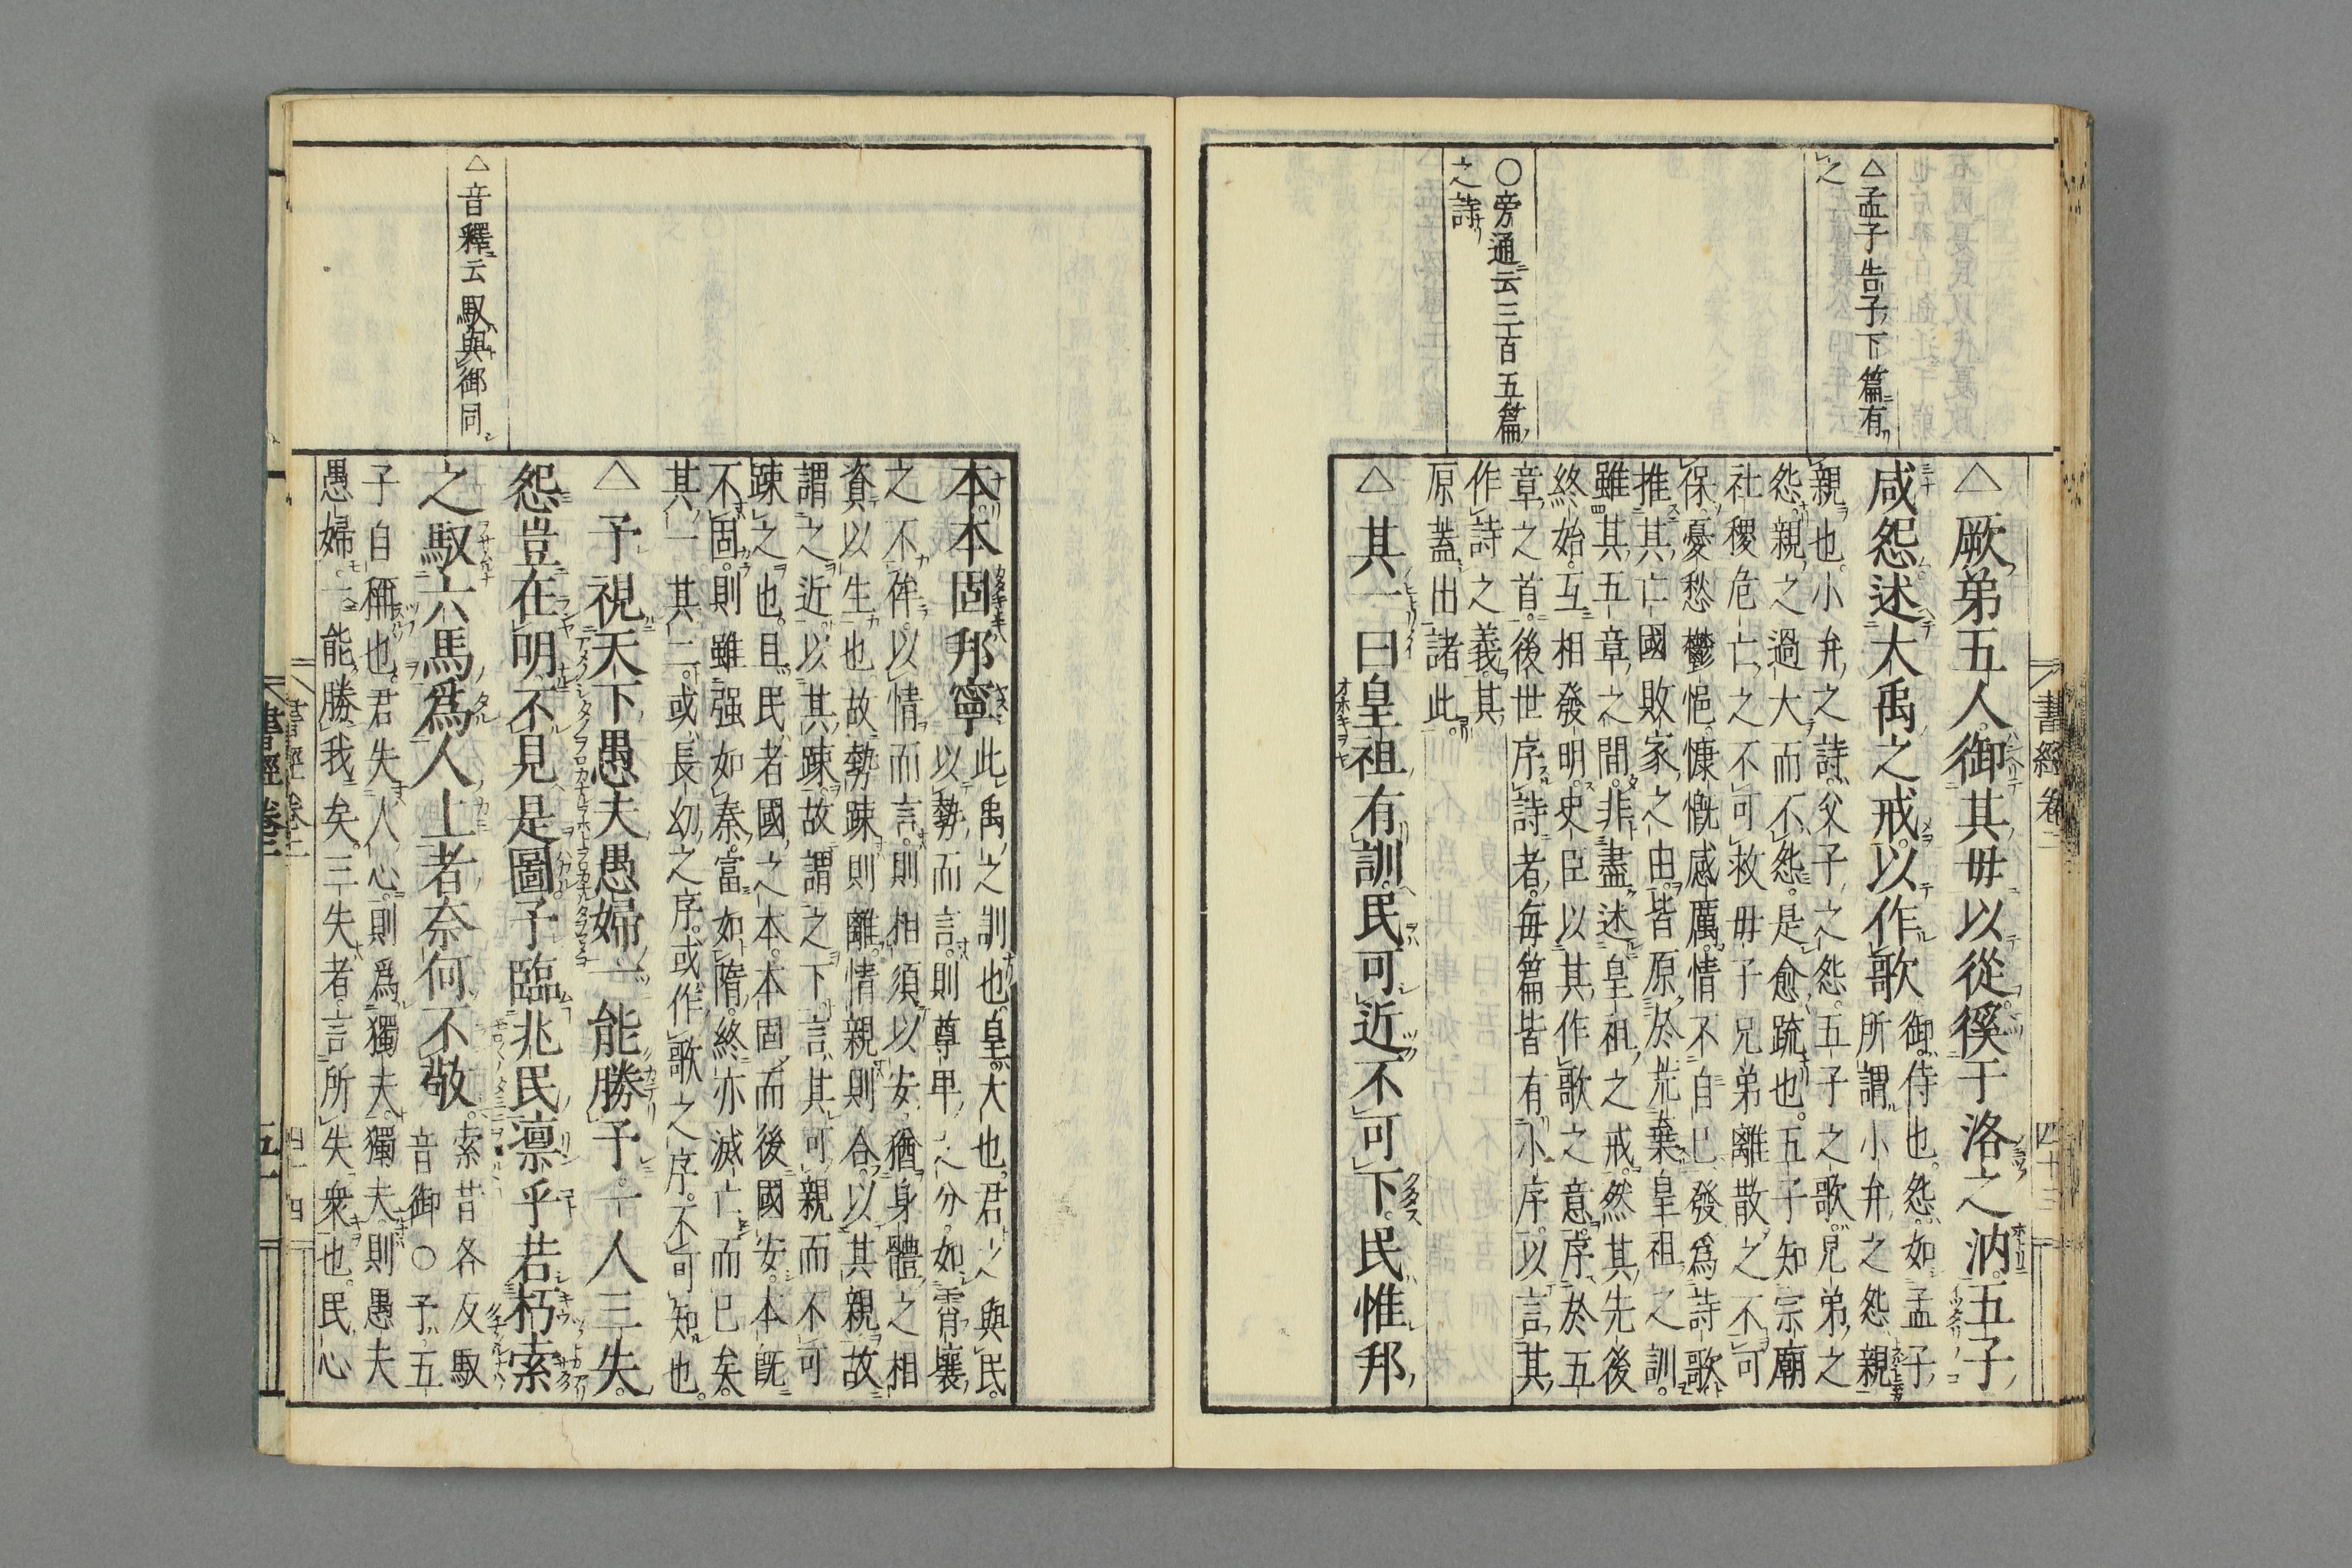 書經卷二
四十三
△孟子告子下篇有
之
〇旁通云三百五篇
之詩
△厥弟五人御其母以從徯于洛之汭五子
咸怨述大禹之戒以作歌御侍也怨如孟子
所謂小弁之怨親
親也小弁之詩父子之怨五子之歌兄弟之
怨親之過大而不怨是愈疏也五子知宗廟
社稷危亡之不可救母子兄弟離散之不可
保憂愁鬱悒慷慨感厲情不自已發爲詩歌
推其亡國敗家之由皆原於荒棄皇祖之訓
雖其五章之間非盡述皇祖之戒然其先後
終始互相發明史臣以其作歌之意序於五
章之首後世序詩者每篇皆有小序以言其
作詩之義其
原蓋出諸此
△其一曰皇祖有訓民可近不可下民惟邦
△音釋云馭與御同
本本固邦寧此禹之訓也皇大也君之與民
以勢而言則尊卑之分如霄壤
之不侔以情而言則相須以安猶身體之相
資以生也故勢疎則離情親則合以其親故
謂之近以其疎故謂之下言其可親而不可
疎之也且民者國之本本固而後國安本既
不固則雖强如秦富如隋終亦滅亡而已矣
其一其二或長幼之序或作歌之序不可知也
△予視天下愚夫愚婦一能勝予一人三失
怨豈在明不見是圖予臨兆民凛乎若朽索
之馭六馬爲人上者奈何不敬索昔各反馭
音御〇予五
子自稱也君失人心則爲獨夫獨夫則愚夫
愚婦一能勝我矣三失者言所失衆也民心
書經卷二
四十四